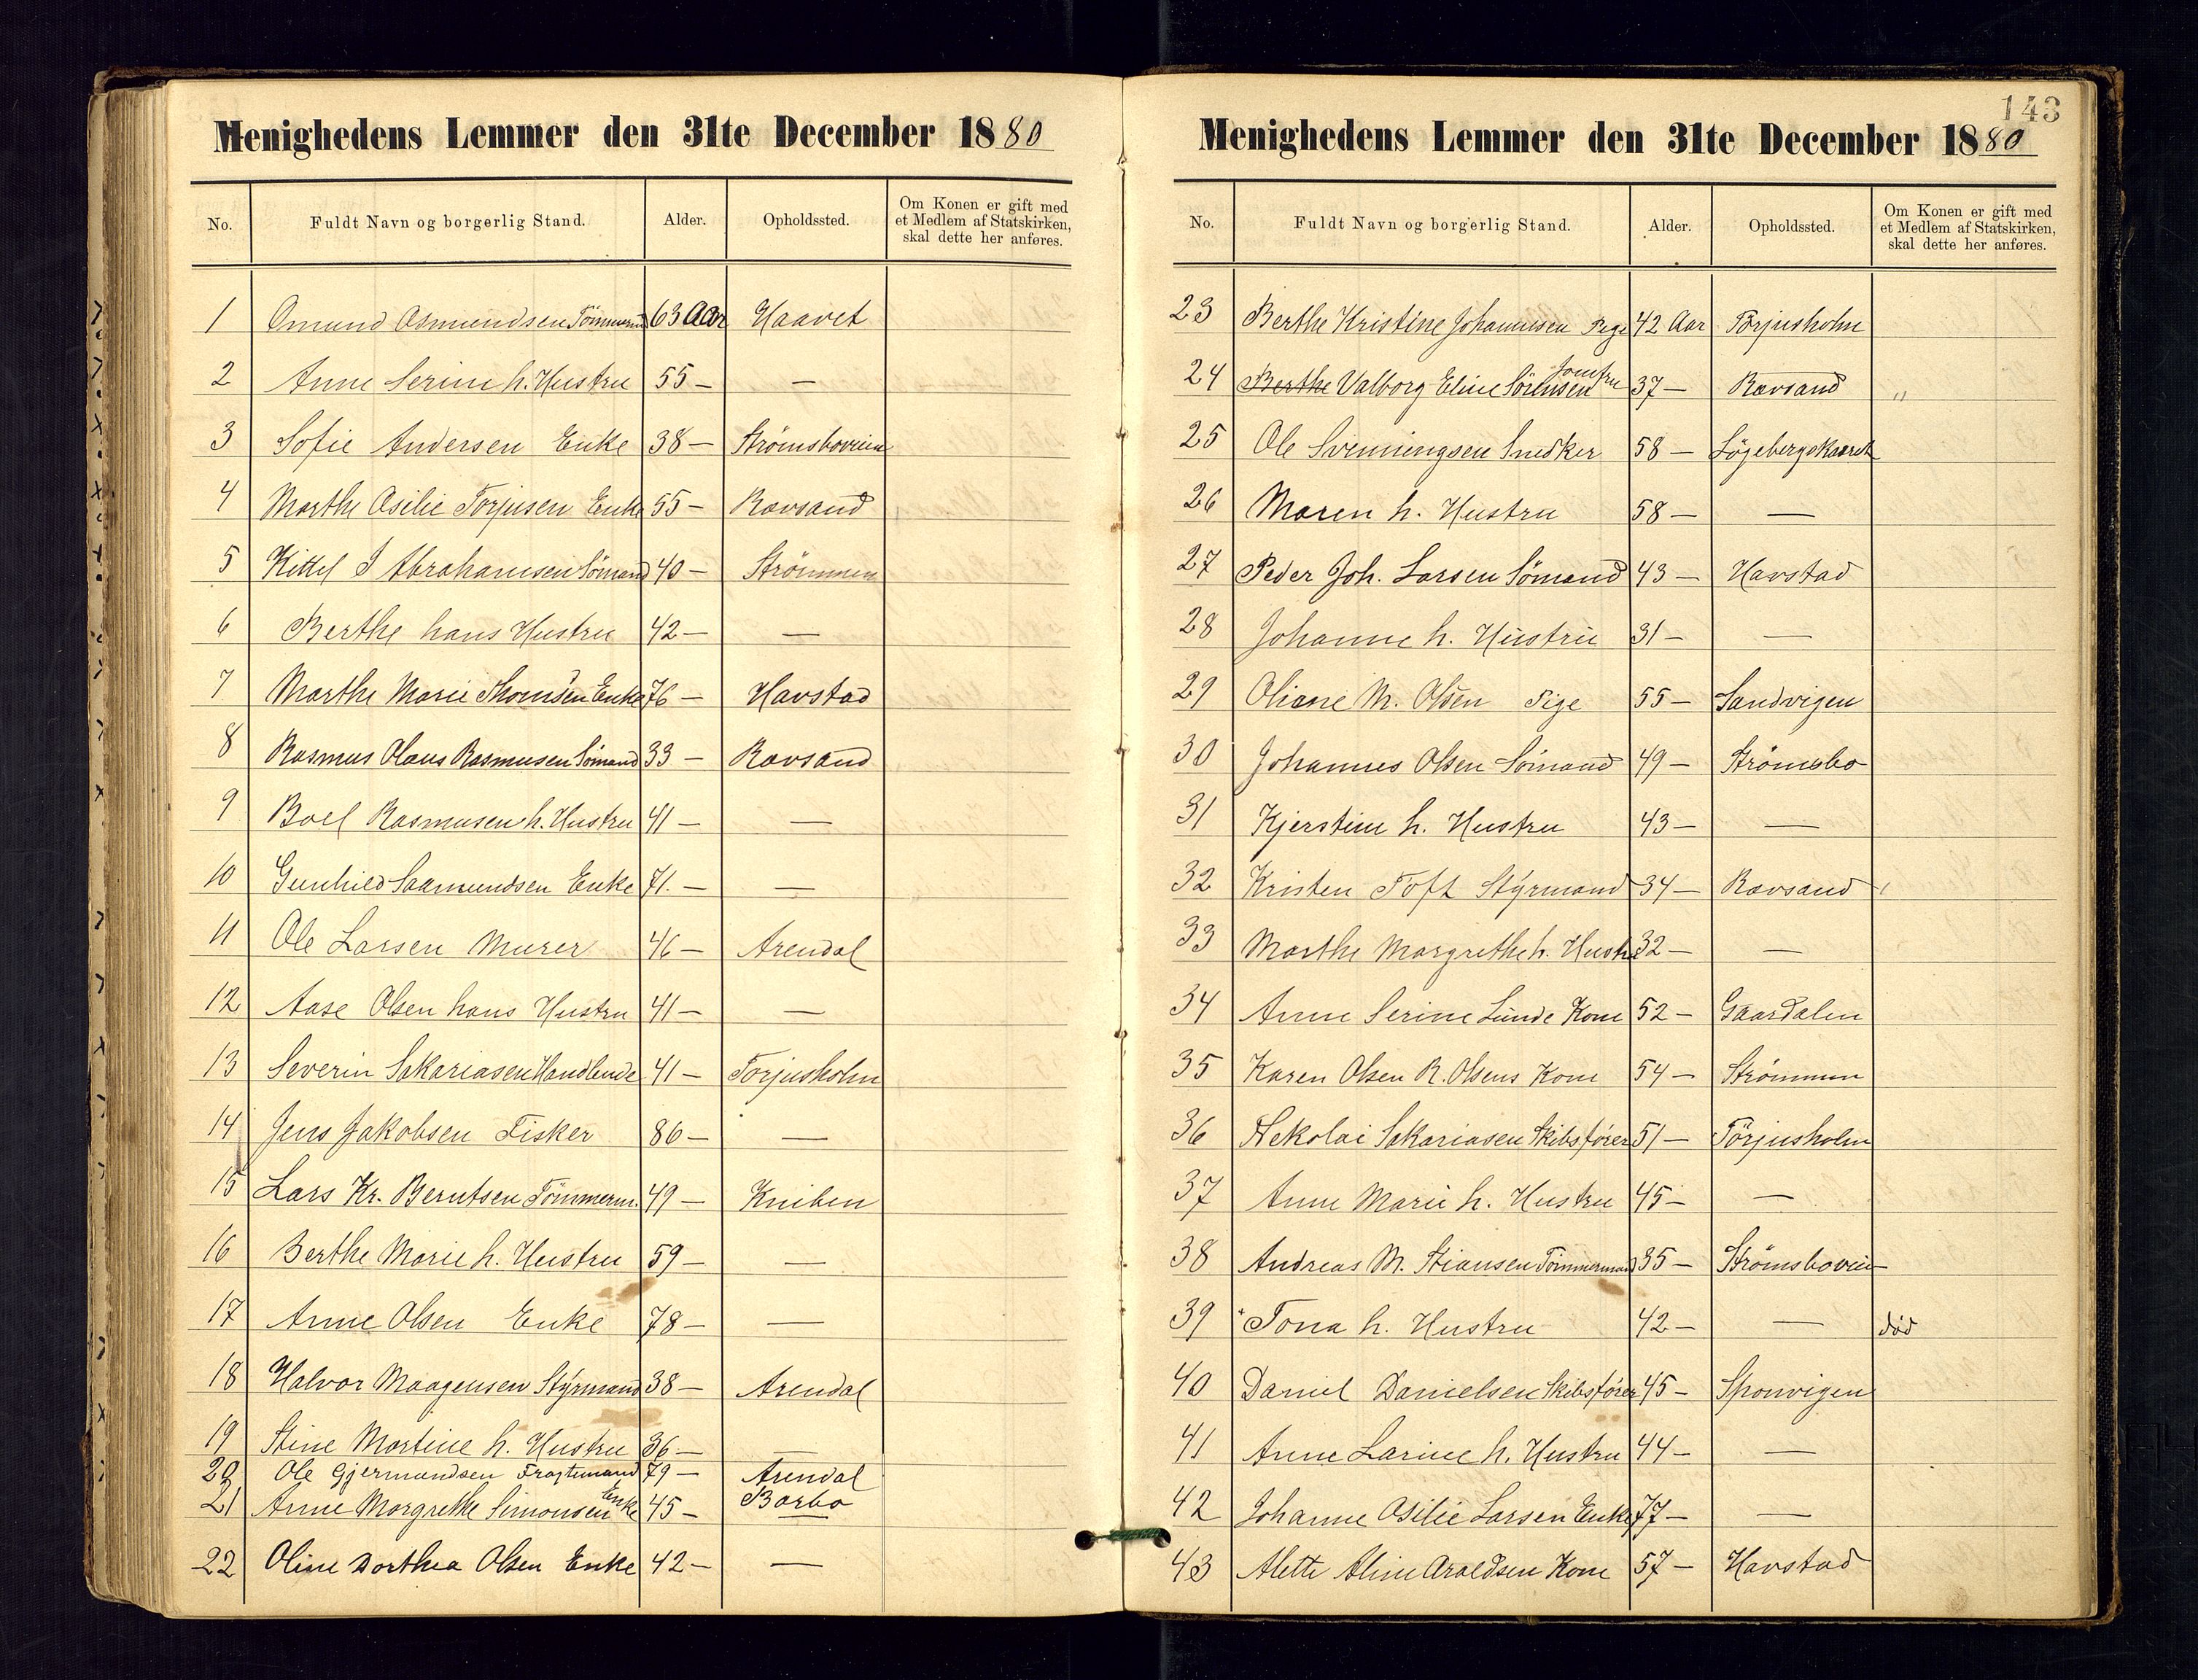 Menighedens Lemmer den 31te December 1880
No. Fuldt Navn og borgerlig Stand. Alder. Opholdssted. Om Konen er gift med et Medlem af Statskirken, skal dette her anføres.
1 Omund Osmundsen Tömmermd 63 Aar Haavet
2 Anne Serine h. Hustru 55 — —
3 Sofie Andersen Enke 38 — Strømsboveien
4 Marthe Asilie Torjusen Enke 55 — Ravsand
5 Kittel J Abrahamsen Sömand 40 — Strömmen
6 Berthe hans Hustru 42 — —
7 Marthe Marie Thomsen Enke 76 — Havstad
8 Rasmus Olaus Rasmusen Sömand 33 — Ravsand
9 Boel Rasmusen h. Hustru 41 — —
10 Gunhild Saamundsen Enke 71. — —
11 Ole Larsen Murer 46 — Arendal
12 Aase Olsen hans Hustru 41 — —
13 Severin Sakariasen Handlende 41 — Torjusholm
14 Jens Jakobsen Fisker 86 — —
15 Lars Kr. Berntsen Tömmerm. 49 — Kniben
16 Berthe Marie h. Hustru 59 — —
17 Anne Olsen Enke 78 — —
18 Halvor Maagensen Styrmand 38 — Arendal
19 Stine Martine h. Hustru 36 — —
20 Ole Gjermundsen Fragtemand 79 — Arendal
21 Anne Margrethe Simonsen Enke 45 — Barbo
22 Oline Dorthea Olsen Enke 42 — —
143
Menighedens Lemmer den 31te December 1880
No. Fuldt Navn og borgerlig Stand. Alder. Opholdssted. Om Konen er gift med et Medlem af Statskirken, skal dette her anføres.
23 Berthe Kristine Johannesen Pige 42 Aar Torjusholm
24 Berthe Valborg Eline Sörensen Jomfru 37 — Ravsand "
25 Ole Svenningsen Snedker 58 —
26 Maren h. Hustru 58 — —
27 Peder Joh. Larsen Sömand 43 — Havstad
28 Johanne h. Hustru 31 — —
29 Oliane M. Olsen Pige 55 — Sandvigen
30 Johannes Olsen Sömand 49 — Strömsbo
31 Kjerstine h. Hustru 43 — —
32 Kristen Toft Styrmand 34 — Ravsand
33 Marthe Margrethe h. Hustru 32 — —
34 Anne Serine Lunde Kone 52 — Gaardalen
35 Karen Olsen R. Olsens Kone 54 — Strömmen
36 Nekolai Sakariasen Skibsfører 51 — Törjusholm
37 Anne Marie h. Hustru 45 — —
38 Andreas M. Stiansen Tömmermand 35 — Strømsboveien
39 Tona h. Hustru 42 — — död
40 Daniel Danielsen Skibsfører 45 — Sponvigen
41 Anne Larine h. Hustru 44 — —
42 Johanne Asilie Larsen Enke 77 — —
43 Alette Aline Aroldsen Kone 57 — Havstad